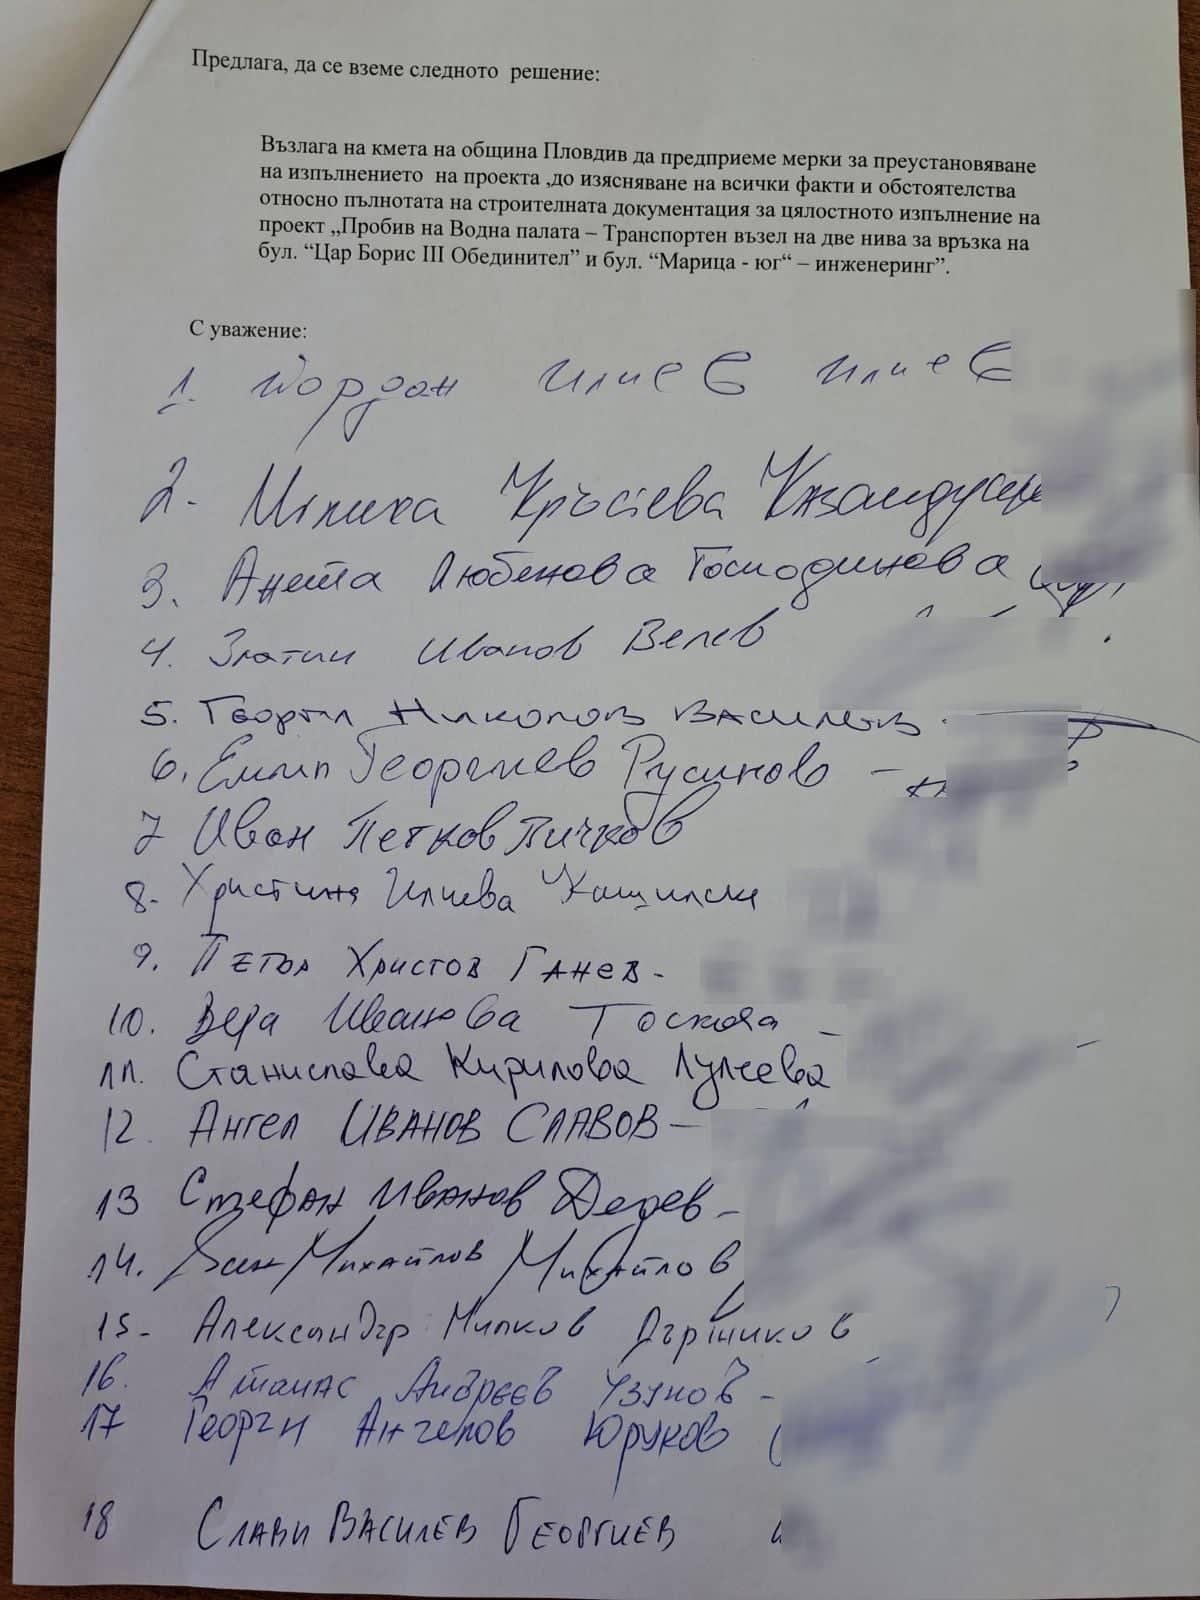 Предлага, да се вземе следното решение:
Възлага на кмета на община Пловдив да предприеме мерки за преустановяване
на изпълнението на проекта ,до изясняване на всички факти и обстоятелства
относно пълнотата на строителната документация за цялостното изпълнение на
проект „Пробив на Водна палата – Транспортен възел на две нива за връзка на
бул. “Цар Борис III Обединител” и бул. “Марица - юг“ – инженеринг”.
С уважение:
1. Йордан Илиев Илиев
2.
3. Анета Любенова Господинова
4. Златин Иванов Велев
5. Георги Николов Василев
6. Емил Георгиев Русинов –
7 Иван Петков Пичков
8. Христина Илиева
9. Петър Христов Ганев -
10. Вера Иванова Тоскова –
11. Станислава Кирилова Лулчева
12. Ангел Иванов Славов –
13 Стефан Иванов Дедев –
14. Михайлов Михайлов
15 - Александър Милков Държиков
16. Атанас Андреев Узунов –
17 Георги Ангелов Юруков
18 Слави Василев Георгиев